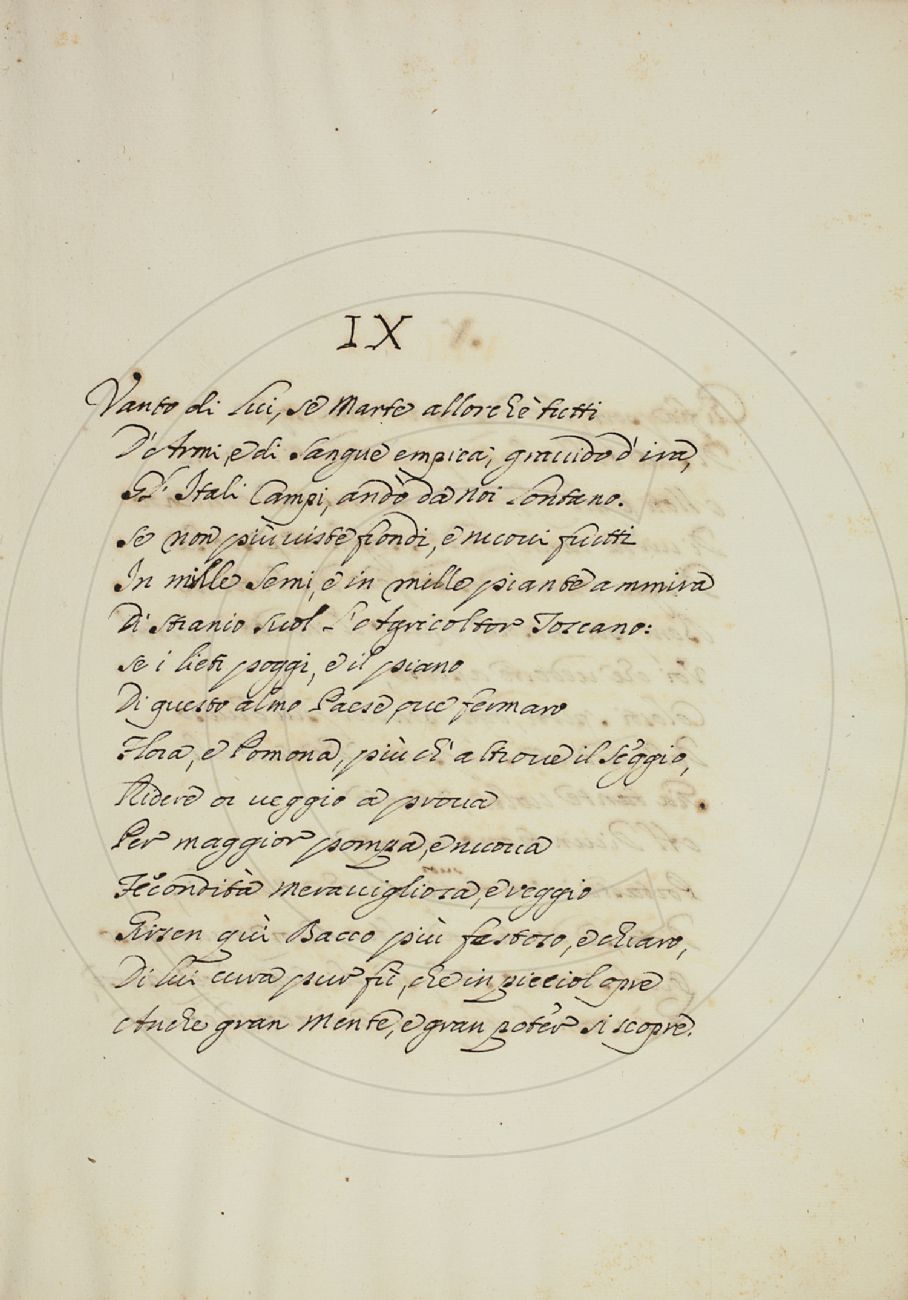 IX
Vanto di lui, se Marte allorchè tutti
D'Armi, e di sangue empiea, gravido d'ira,
Gl'Itali Campi, andò da noi lontano.
Se non più viste frondi, e nuovi frutti
In mille semi, e in mille piante ammira
Di stranio suol l'Agricoltor Toscano:
Se i lieti poggi, e il piano
Di questo almo Paese, ove fermaro
Flora, e Pomona, più ch'altrove il Seggio,
Ridere or veggio a prova
Per maggior pompa, e nuova
Fecondità meravigliosa, e veggio
Girsen quì Bacco più fastoso, e chiaro,
Di lui cura pur fù, che in picciol opre
Anche gran Mente, e gran poter si scopre.